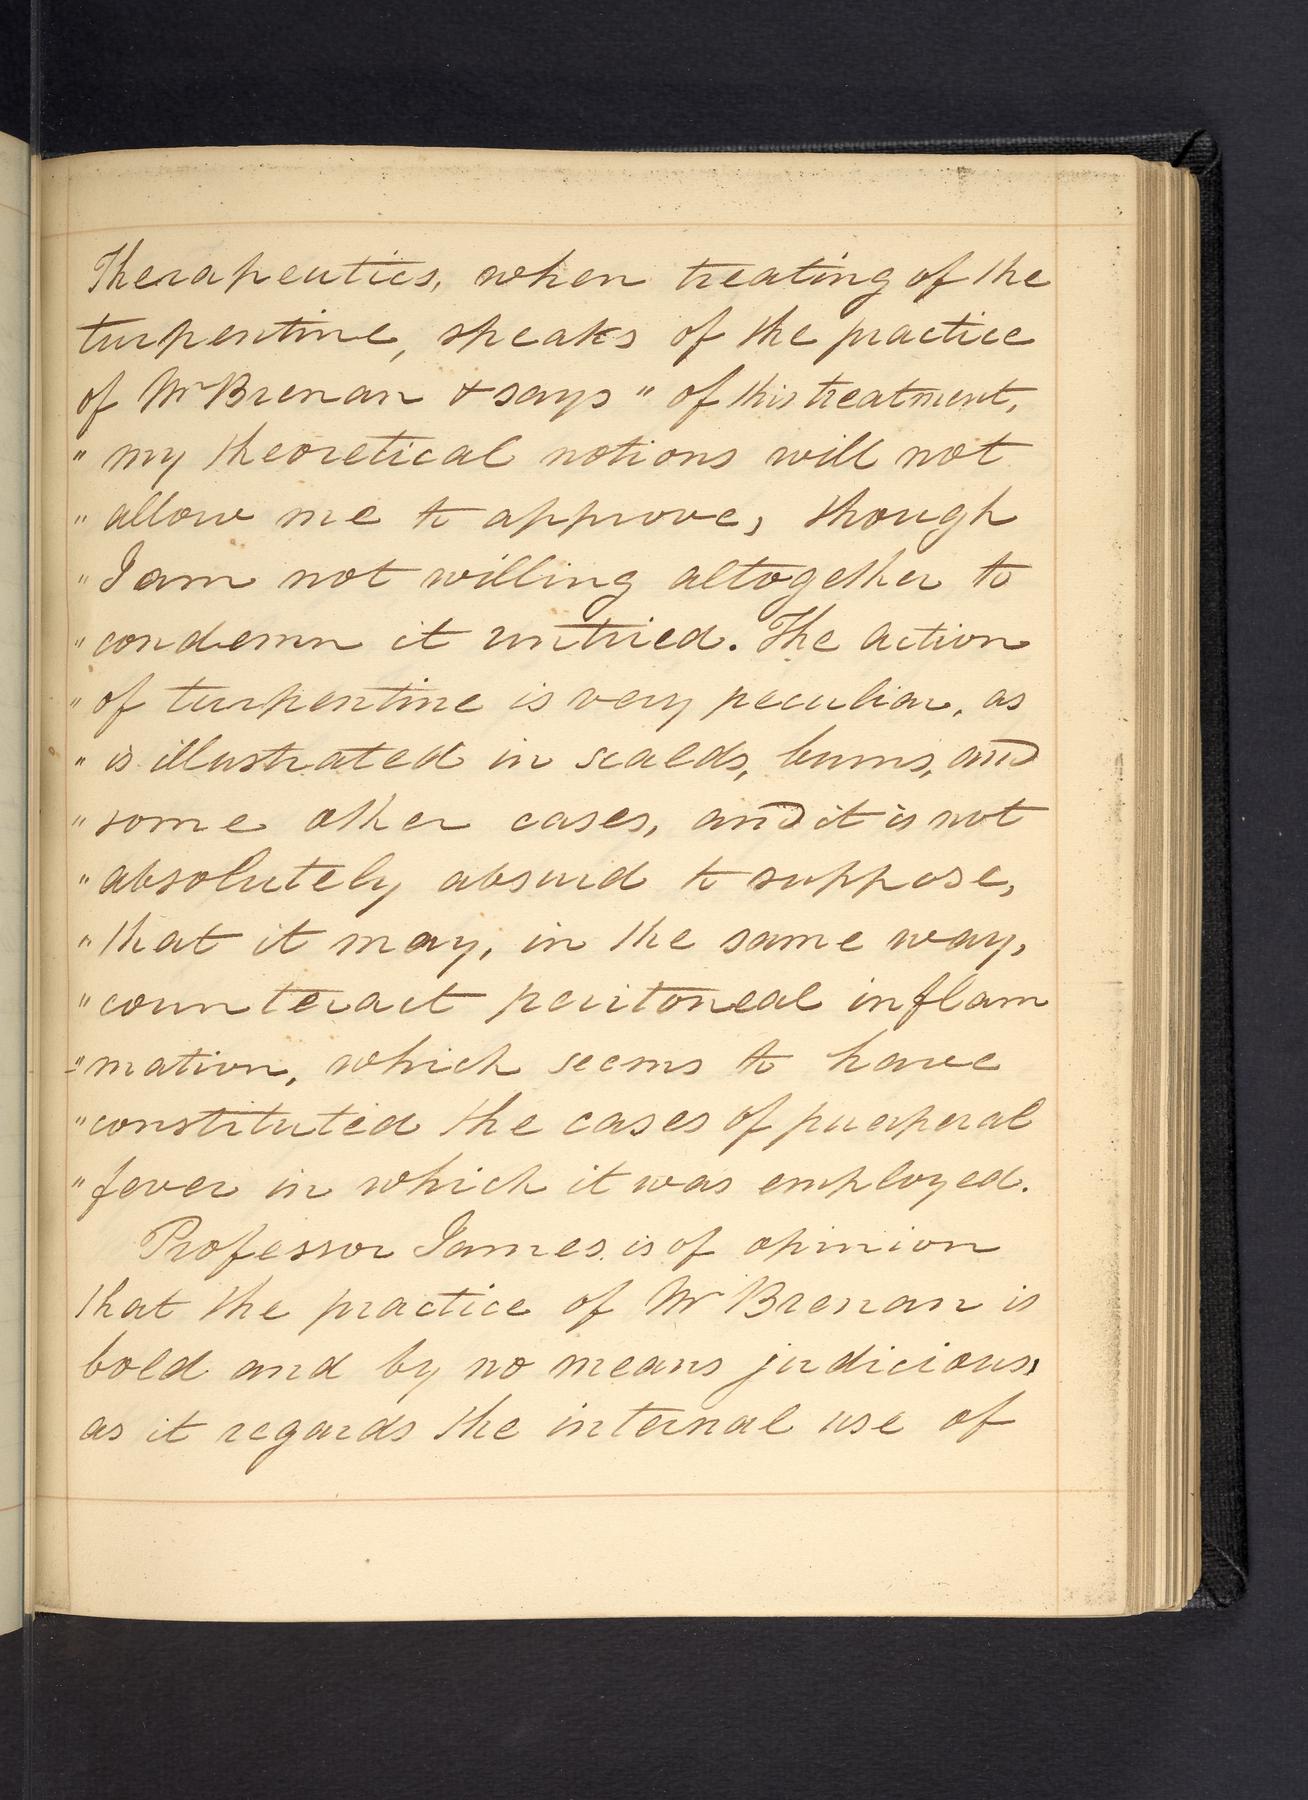 Therapeutics, when treating of the
turpentine, speaks of the practice
of Mr Brenan & says " of this treatment,
" my theoretical notions will not
" allow me to approve, though
" I am not willing altogether to
" condemn it untried. The action
" of turpentine is very peculiar, as
" is illustrated in scalds, burns, and
" some other cases, and it is not
" absolutely absurd to suppose,
" that it may, in the same way,
" counteract peritoneal inflam
" mation, which seems to have
" constituted the cases of puerperal
" fever in which it was employed.
Professor James is of opinion
that the practice of Mr Brenan is
bold and by no means judicious,
as it regards the internal use of